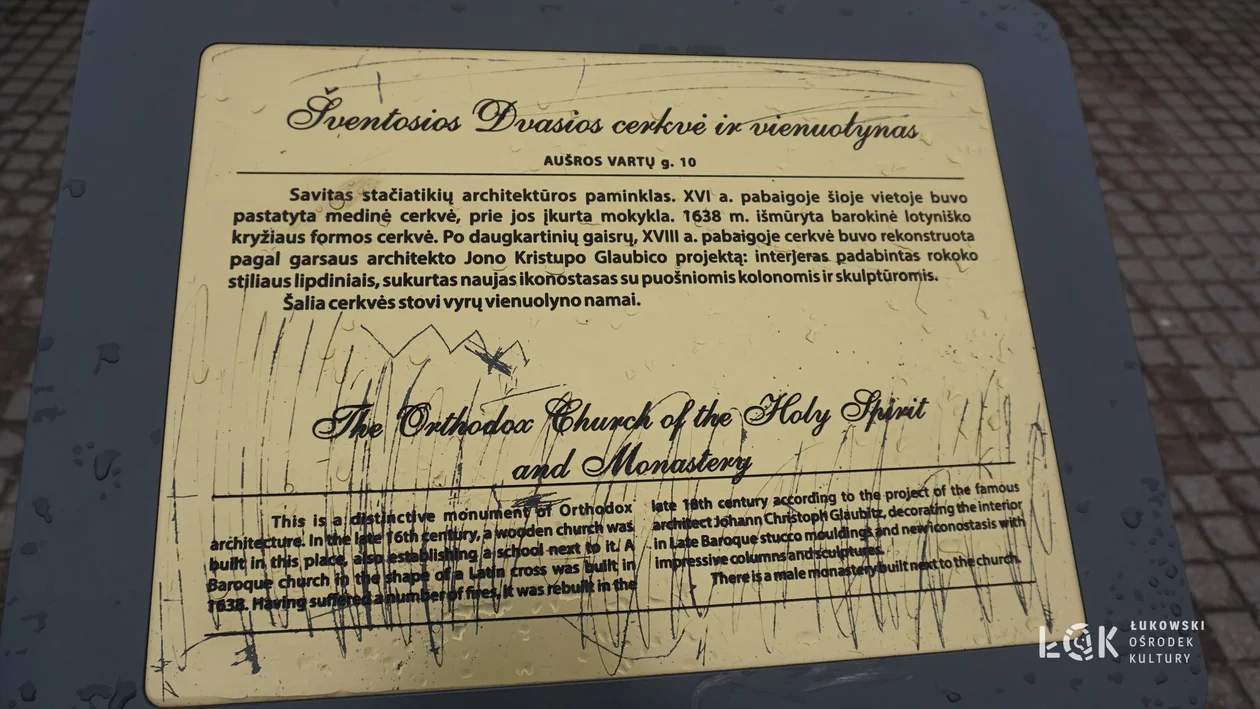 Šventosios Dvasios cerkvė ir vienuolynas
AUŠROS VARTŲ g. 10
Savitas stačiatikių architektūros paminklas. XVI a. pabaigoje šioje vietoje buvo
pastatyta medinė cerkvė, prie jos įkurta mokykla. 1638 m. išmūryta barokinė lotyniško
kryžiaus formos cerkvė. Po daugkartinių gaisrų, XVIII a. pabaigoje cerkvė buvo rekonstruota
pagal garsaus architekto Jono Kristupo Glaubico projektą: interjeras padabintas rokoko
stiliaus lipdiniais, sukurtas naujas ikonostasas su puošniomis kolonomis ir skulptūromis.
Šalia cerkvės stovi vyrų vienuolyno namai.
The Orthodox Church of the Holy Spirit
and Monastery
This is a distinctive monument of Orthodox
architecture. In the late 16th century, a wooden church was
built in this place, also establishing a school next to it. A
Baroque church in the shape of a Latin cross was built in
1638. Having suffered a number of fires, it was rebuilt in the
late 18th century according to the project of the famous
architect Johann Christoph Glaubitz, decorating the interior
in Late Baroque stucco mouldings and new iconostasis with
impressive columns and sculptures.
There is a male monastery built next to the church.
ŁOK
ŁUKOWSKI
OŚRODEK
KULTURY